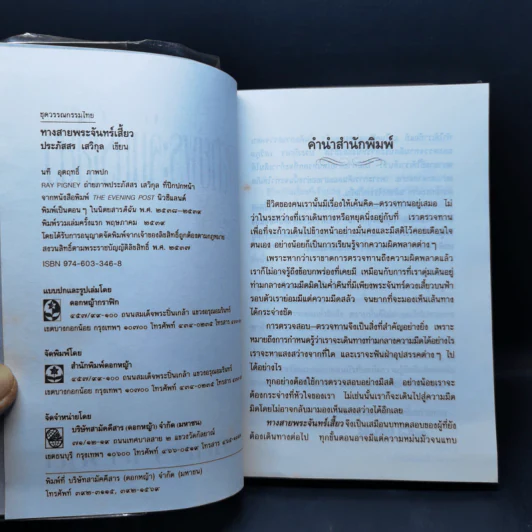 ชุดวรรณกรรมไทย
ทางสายพระจันทร์เสี้ยว
ประภัสสร เสวิกุล เขียน
นที อุตฤทธิ์ ภาพปก
RAY PIGNEY ถ่ายภาพประภัสสร เสวิกุล ที่ปีกปกหน้า
จากหนังสือพิมพ์ THE EVENING POST นิวซีแลนด์
พิมพ์เป็นตอนๆ ในนิตยสารดิฉัน พ.ศ.
พิมพ์รวมเล่มครั้งแรก พฤษภาคม ๒๕๓๗
โดยได้รับการอนุญาตจัดพิมพ์จากเจ้าของลิขสิทธิ์ถูกต้องตามกฎหมาย
สงวนลิขสิทธิ์ตามพระราชบัญญัติลิขสิทธิ์ พ.ศ. ๒๕๓๗
ISBN 974-603-346-8
แบบปกและรูปเล่มโดย
ดอกหญ้ากราฟิก
๔๕๗/๙๙-๑๐๐ ถนนสมเด็จพระปิ่นเกล้า แขวงอรุณอมรินทร์
เขตบางกอกน้อย กรุงเทพฯ ๑๐๗๐๐ โทรศัพท์
จัดพิมพ์โดย
สำนักพิมพ์ดอกหญ้า
๔๕๗/๙๙-๑๐๐ ถนนสมเด็จพระปิ่นเกล้า แขวงอรุณอมรินทร์
เขตบางกอกน้อย กรุงเทพฯ ๑๐๗๐๐ โทรศัพท์
จัดจำหน่ายโดย
บริษัทสามัคคีสาร (ดอกหญ้า) จำกัด (มหาชน)
ถนนเทศบาลสาย ๓ แขวงวัดกัลยาณ์
เขตธนบุรี กรุงเทพฯ ๑๐๖๐๐ โทรศัพท์
พิมพ์ที่ บริษัทสามัคคีสาร (ดอกหญ้า) จำกัด (มหาชน)
โทรศัพท์
คำนำสำนักพิมพ์
ชีวิตของคนเรานั้นมีเรื่องให้เค้นคิด–ตรวจทานอยู่เสมอ ไม่
ว่าในระหว่างที่เราเดินทางหรือหยุดนิ่งอยู่กับที่ เราตรวจทาน
เพื่อที่จะก้าวเดินไปข้างหน้าอย่างมั่นคงและมีสติไว้คอยเตือนใจ
ตนเอง อย่างน้อยก็เป็นการเรียนรู้จากความผิดพลาดต่างๆ
เพราะหากว่าเราขาดการตรวจทานถึงความผิดพลาดแล้ว
เราก็ไม่อาจรู้ถึงข้อบกพร่องที่เคยมี เหมือนกับการที่เราดุ่มเดินอยู่
ท่ามกลางความมืดมิดในค่ำคืนที่มีเพียงพระจันทร์ดวงเสี้ยวบนฟ้า
รอบตัวเราย่อมมีแต่ความมืดสลัว จนยากที่จะมองเห็นเส้นทาง
ได้กระจ่างชัด
การตรวจสอบ–ตรวจทานจึงเป็นสิ่งที่สำคัญอย่างยิ่ง เพราะ
หมายถึงการกำหนดรู้ว่าเราจะเดินทางท่ามกลางความมืดได้อย่างไร
เราจะหาแสงสว่างจากที่ใด และเราจะฟันฝ่าอุปสรรคต่างๆ ไป
ได้อย่างไร
ทุกอย่างต้องใช้การตรวจสอบอย่างมีสติ อย่างน้อยเราจะ
ต้องกระจ่างที่หัวใจของเรา ไม่เช่นนั้นเราก็จะเดินไปสู่ความมืด
มิดโดยไม่อาจกลับมามองเห็นแสงสว่างได้อีกเลย
ทางสายพระจันทร์เสี้ยว จึงเป็นเสมือนบททดสอบของผู้ที่ยัง
ต้องเดินทางต่อไป ทุกขั้นตอนอาจมีแต่ความหม่นมัวจนแทบ